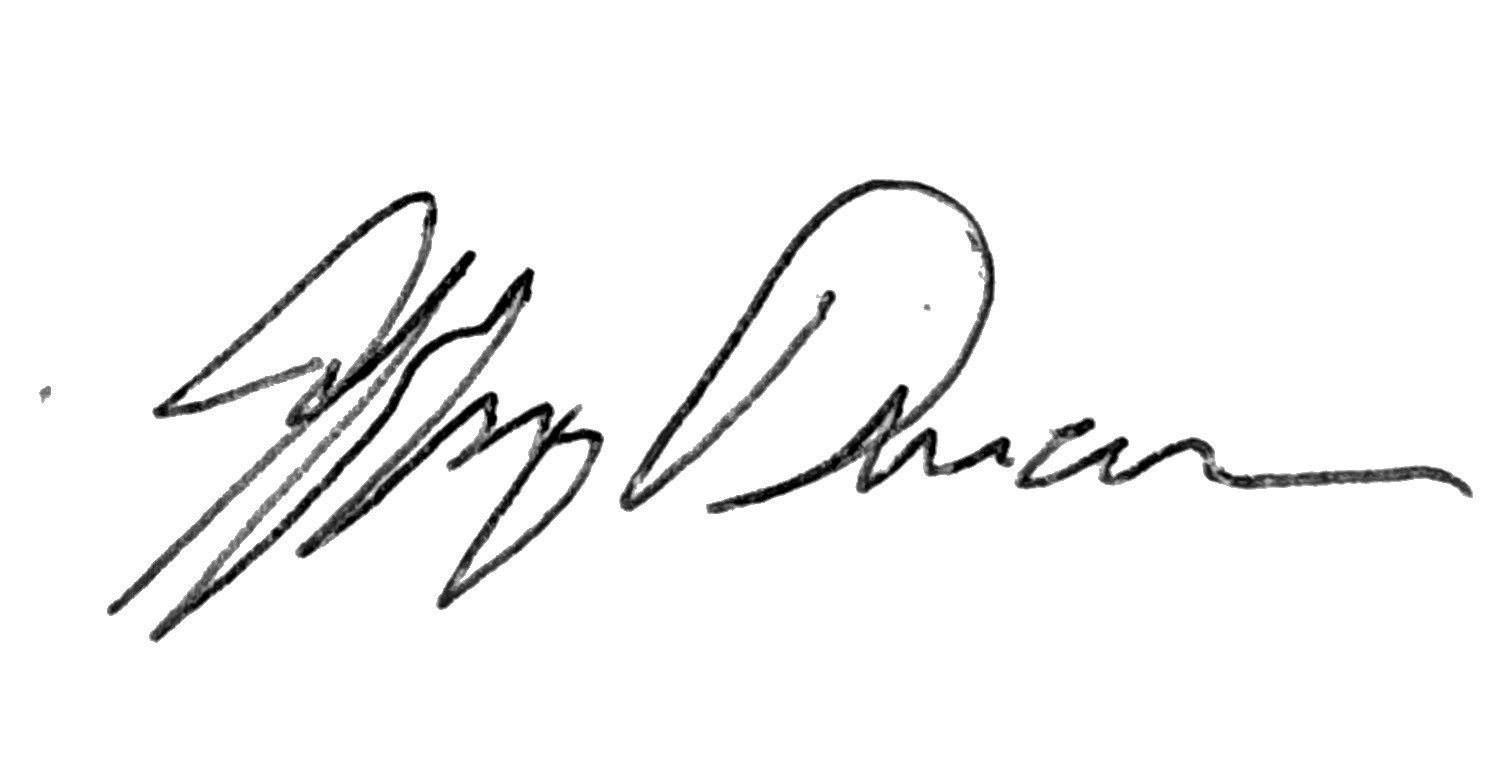 Jeffrey Duncan